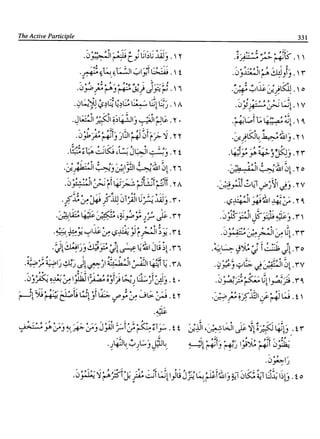 The Active Participle 331
١١. كَأَنَّهُمْ حُمُرٌ مُسْتَنْفِرَةٌ. ١٢. وَلَقَدْ نَادَانَا نُوحٌ فَلَنِعْمَ الْمُجِيبُونَ.
١٣. وَأُولَئِكَ هُمُ الْمُهْتَدُونَ. ١٤. فَفَتَحْنَا أَبْوَابَ السَّمَاءِ بِمَاءٍ مُنْهَمِرٍ.
١٥. لِلْكَافِرِينَ عَذَابٌ مُهِينٌ. ١٦. ثُمَّ يَتَوَلَّى فَرِيقٌ مِنْهُمْ وَهُمْ مُعْرِضُونَ.
١٧. إِنَّمَا نَحْنُ مُسْتَهْزِئُونَ. ١٨. رَبَّنَا إِنَّنَا سَمِعْنَا مُنَادِيًا يُنَادِي لِلْإِيمَانِ.
١٩. إِنَّهُ مُصِيبُهَا مَا أَصَابَهُمْ. ٢٠. عَالِمُ الْغَيْبِ وَالشَّهَادَةِ الْكَبِيرُ الْمُتَعَالِ.
٢١. وَاللَّهُ مُحِيطٌ بِالْكَافِرِينَ. ٢٢. لَا جَرَمَ أَنَّ لَهُمُ النَّارَ وَأَنَّهُمْ مُفْرَطُونَ.
٢٣. وَلِكُلٍّ وِجْهَةٌ هُوَ مُوَلِّيهَا. ٢٤. وَبُسَّتِ الْجِبَالُ بَسًّا، فَكَانَتْ هَبَاءً مُنْبَثًّا.
٢٥. إِنَّ اللَّهَ يُحِبُّ الْمُقْسِطِينَ. ٢٦. إِنَّ اللَّهَ يُحِبُّ التَّوَّابِينَ وَيُحِبُّ الْمُتَطَهِّرِينَ.
٢٧. وَفِي الْأَرْضِ آيَاتٌ لِلْمُوقِنِينَ. ٢٨. أَأَنْتُمْ أَنْشَأْتُمْ شَجَرَتَهَا أَمْ نَحْنُ الْمُنْشِئُونَ.
٢٩. مَنْ يَهْدِ اللَّهُ فَهُوَ الْمُهْتَدِي. ٣٠. وَلَقَدْ يَسَّرْنَا الْقُرْآنَ لِلذِّكْرِ فَهَلْ مِنْ مُدَّكِرٍ.
٣١. وَعَلَيْهِ فَلْيَتَوَكَّلِ الْمُتَوَكِّلُونَ. ٣٢. عَلَى سُرُرٍ مَوْضُونَةٍ، مُتَّكِئِينَ عَلَيْهَا مُتَقَابِلِينَ.
٣٣. إِنَّا مِنَ الْمُجْرِمِينَ مُنْتَقِمُونَ. ٣٤. يَوَدُّ الْمُجْرِمُ لَوْ يَفْتَدِي مِنْ عَذَابِ يَوْمِئِذٍ بِبَنِيهِ.
٣٥. إِنِّي ظَنَنْتُ أَنِّي مُلَاقٍ حِسَابِيَهْ. ٣٦. إِذْ قَالَ اللَّهُ يَا عِيسَى إِنِّي مُتَوَفِّيكَ وَرَافِعُكَ إِلَيَّ.
٣٧. إِنَّ الْمُتَّقِينَ فِي جَنَّاتٍ وَعُيُونٍ. ٣٨. يَا أَيَّتُهَا النَّفْسُ الْمُطْمَئِنَّةُ ارْجِعِي إِلَى رَبِّكِ رَاضِيَةً مَرْضِيَّةً.
٣٩. فَتَرَبَّصُوا إِنَّا مَعَكُمْ مُتَرَبِّصُونَ. ٤٠. وَلَئِنْ أَرْسَلْنَا رِيحًا فَرَأَوْهُ مُصْفَرًّا لَظَلُّوا مِنْ بَعْدِهِ يَكْفُرُونَ.
٤١. فَمَا لَهُمْ عَنِ التَّذْكِرَةِ مُعْرِضِينَ. ٤٢. فَمَنْ خَافَ مِنْ مُوصٍ جَنَفًا أَوْ إِثْمًا فَأَصْلَحَ بَيْنَهُمْ فَلَا إِثْمَ
عَلَيْهِ.
٤٣. وَإِنَّهَا لَكَبِيرَةٌ إِلَّا عَلَى الْخَاشِعِينَ، الَّذِينَ ٤٤. سَوَاءٌ مِنْكُمْ مَنْ أَسَرَّ الْقَوْلَ وَمَنْ جَهَرَ بِهِ وَمَنْ هُوَ مُسْتَخْفٍ
يَظُنُّونَ أَنَّهُمْ مُلَاقُوا رَبِّهِمْ وَأَنَّهُمْ إِلَيْهِ بِاللَّيْلِ وَسَارِبٌ بِالنَّهَارِ.
رَاجِعُونَ.
٤٥. وَإِذَا بَدَّلْنَا آيَةً مَكَانَ آيَةٍ وَاللَّهُ أَعْلَمُ بِمَا يُنَزِّلُ قَالُوا إِنَّمَا أَنْتَ مُفْتَرٍ بَلْ أَكْثَرُهُمْ لَا يَعْلَمُونَ.